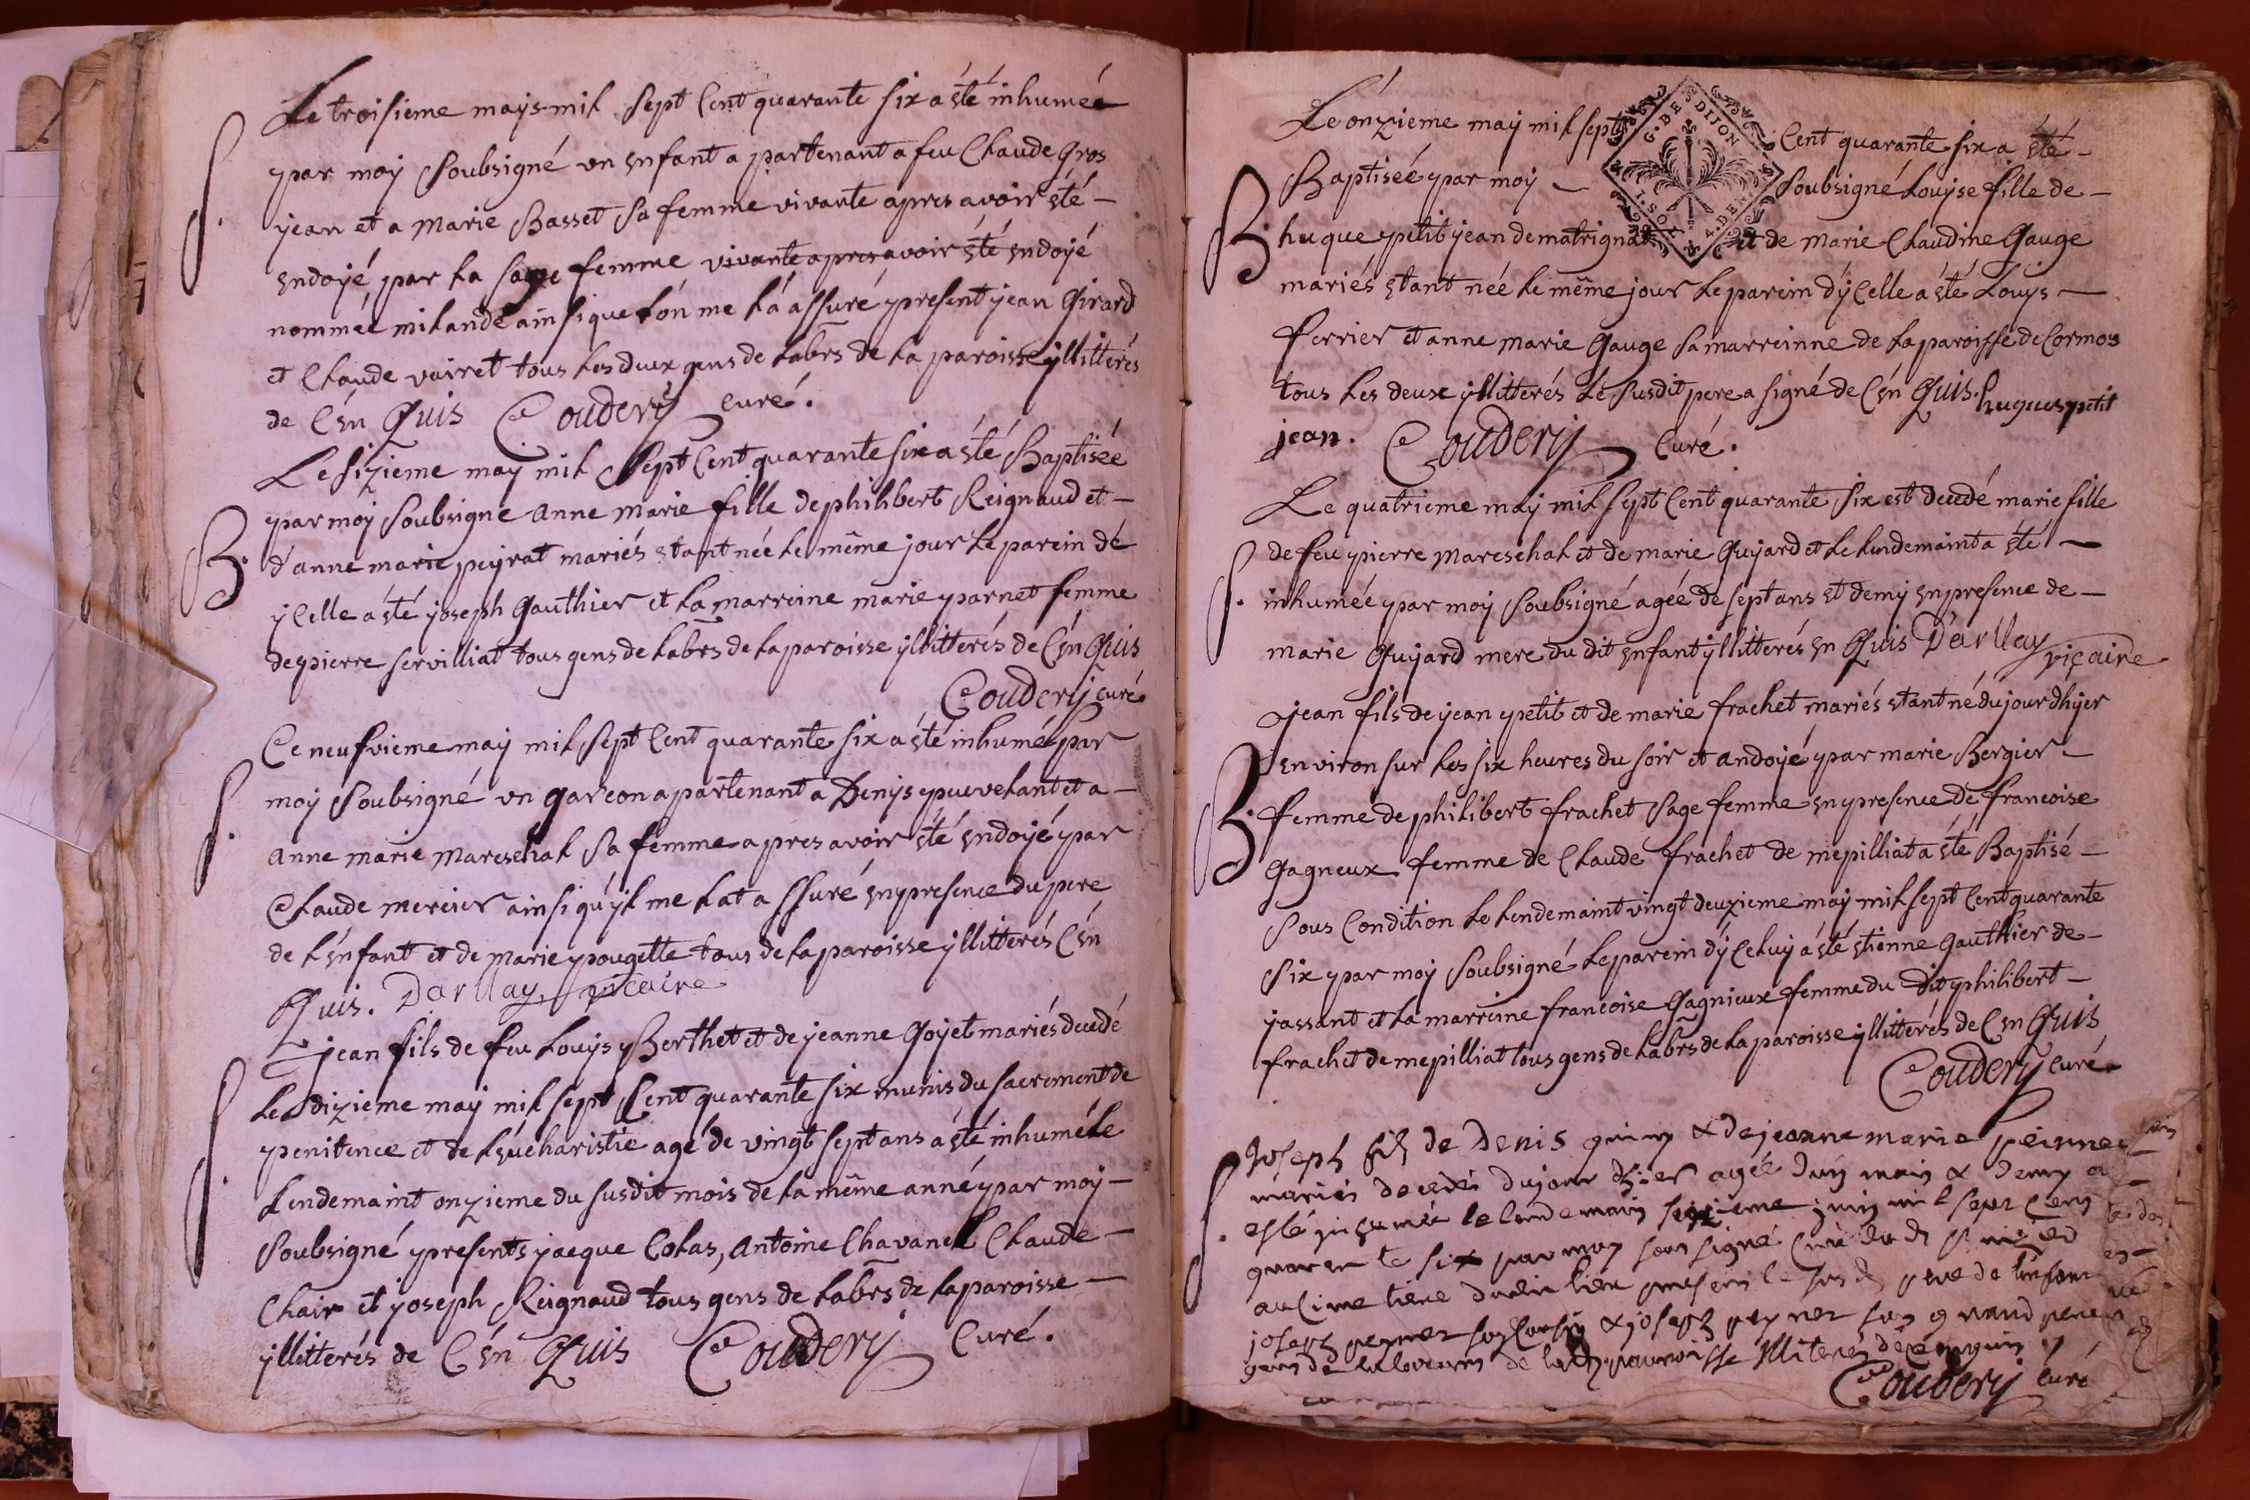 Le troisieme mays mil sept Cent quarante six a été inhumée
S. par moy Soubsigné un enfant apartenant a feu Claude Gros
jean et a Marie Basset Sa femme vivante apres avoir été
endoyé, par La sage femme vivante apres avoir été endoyé
nommée milande ainsi que L'ón me L'á assuré present jean Girard
et Claude vairet tous Les deux gens de Labrs de La paroisse yllitterés
de C én Quis Coudery curé.
Le sizieme may mil Sept Cent quarante six a été Baptiséé
B. par moy Soubsigné anne marie fille de philibert Reignaud et
d'anne marie peyrat mariés etant néé Le même jour Le parein dé
ycelle a été joseph Gauthier et La marreine marie parnet femme
de pierre servilliat tous gens de Labrs de La paroisse yllitterés de C én Quis
Coudery curé
Ce neufvieme may mil Sept Cent quarante six a été inhumé par
S. moy Soubsigné un garcon apartenant a Denys puvelant et a
anne marie Mareschal Sa femme apres avoir été endoyé par
Claude mercier ainsi qu'yl me Lat assuré en presence du pere
de L'énfant et de Marie pougette tous de La paroisse yllitterés C én
Quis. Darllay, vicaire
jean fils de feu Louys Berthet et de jeanne Goyet mariés decedé
S. Le dizieme may mil sept Cent quarante six munis du sacrement de
penitence et de L'eucharistie agé de vingt sept ans a été inhumé Le
Lendemaint onzieme du susdit mois de La même anné par moy
Soubsigné presents jacque Colas, Antoine Chavanel Claude
Chair et joseph Reignaud tous gens de Labrs de La paroisse
yllitterés de C én Quis Coudery Curé.
G. DE DIJON
Le ónzieme may mil sept Cent quarante six a été
B. Baptiséé par moy Soubsigné Louyse fille de
huque petit jean de matrignat et de Marie Claudine Gauge
mariés etant néé Le même jour Le parein d'ycelle a été Louys
ferrier et anne marie Gauge sa marreinne de La paroisse de Cormos
tous Les deux yllitterés Le susdit pere a signé de C én Quis. hugues petit
jean. Coudery Curé.
Le quatrieme may mil sept Cent quarante six est decedé marie fille
S. de feu pierre Mareschal et de marie Guyard et Le Lendemaint a été
inhuméé par moy Soubsigné agéé de sept ans et demy en presence de
marie Guyard mere du dit enfant yllitterés en Quis Darllay vicaire
jean fils de jean petit et de marie frachet mariés etant né du jour d'hyer
B. environ sur Les six heures du soir et andoyé par marie Bergier
femme de philibert frachet Sage femme en presence de francoise
Gagneux femme de Claude frachet de mepilliat a été Baptisé
Sous Condition Le Lendemaint vingt deuzieme may mil sept Cent quarante
Six par moy Soubsigné Le parein d'yceluy a été étienne Gauthier de
jassant et La marreine francoise Gagnieux femme du Dit philibert
frachet de mepilliat tous gens de Labrs de La paroisse yllitterés de C en Quis
Coudery curé
S. joseph fils de Denis & de jeanne marie
mariés decedé du jour dhier agée dun mois & demy
esté inhumée le lendemain juin mil sept Cent
quarante six par moy sousigné curé
au cimetiere dudit lieu present le susd pere de lenfant
joseph & joseph son grand pere
gens de labours de lad paroisse Illiterés
Coudery curé